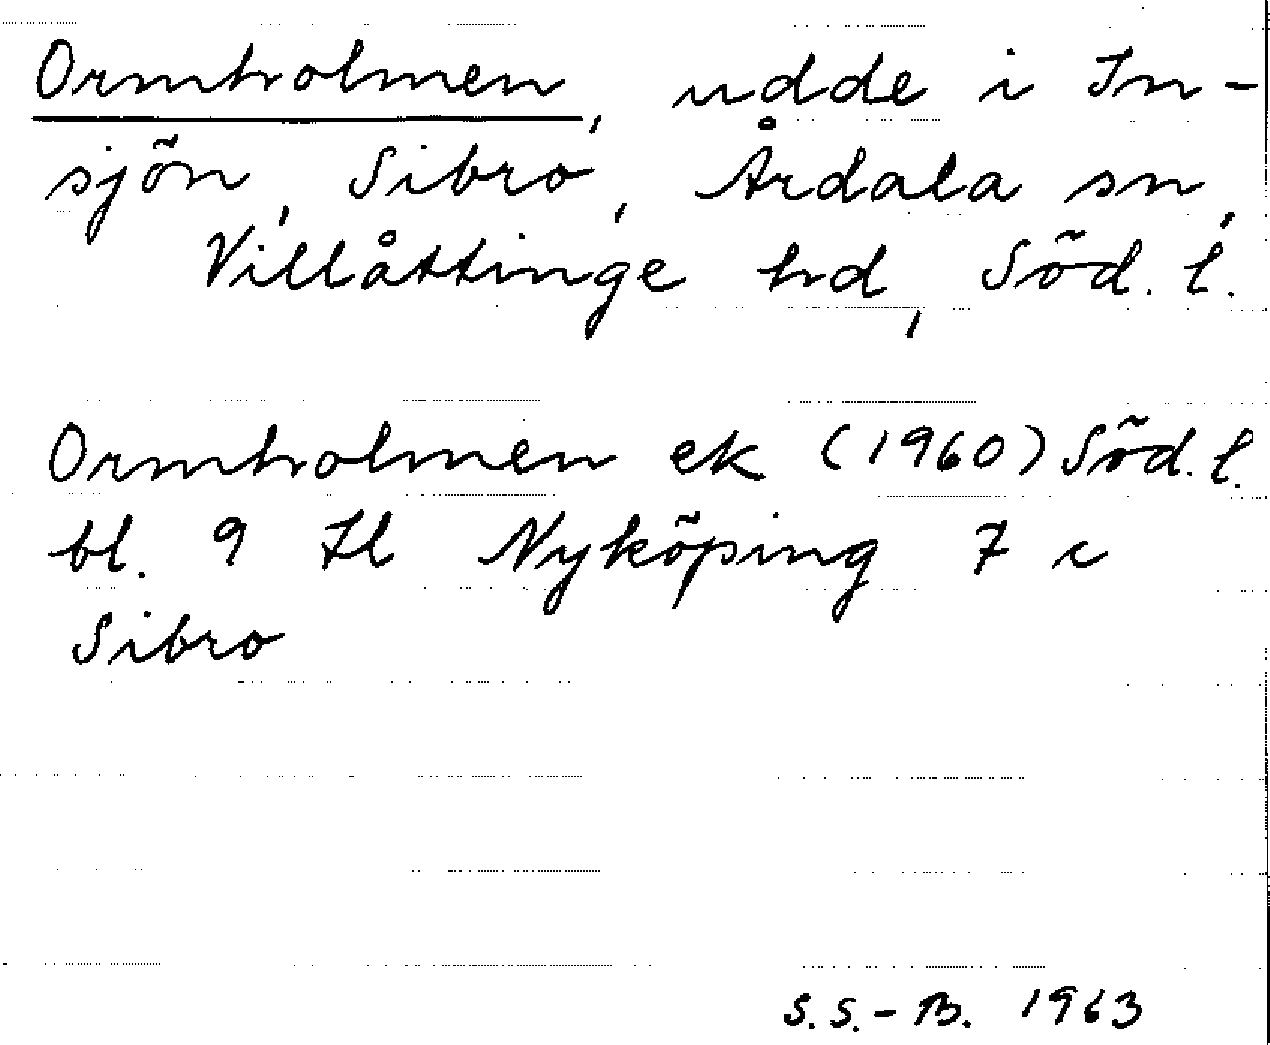 Ormholmen, udde i In-
sjön, Sibro, Årdala sn,
Villåttinge hd, Söd. l.
Ormholmen ek (1960) Söd. l.
bl. 9 Il Nyköping 7 c
Sibro
S.S.-B. 1963